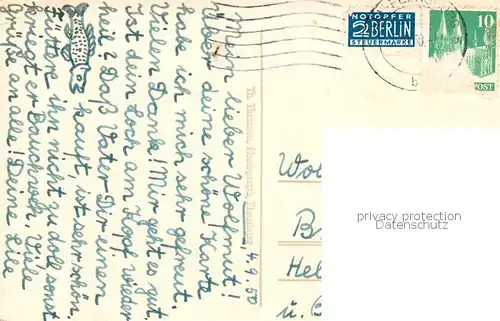 4.9.50
Mein lieber Wolfmut!
Über deine schöne Karte
habe ich mich sehr gefreut.
Vielen Dank! Mir geht es gut.
Ist dein Loch am Kopf wieder
heil? Daß Vater Dir einen
kauft, ist sehr schön.
Füttere ihn nicht zu doll sonst
kriegt er Bauchweh. Viele
Grüße an alle! Deine Lile
NOTOPFER
2 BERLIN
STEUERMARKE
10
POST
privacy protection
Datenschutz
Hel
u.